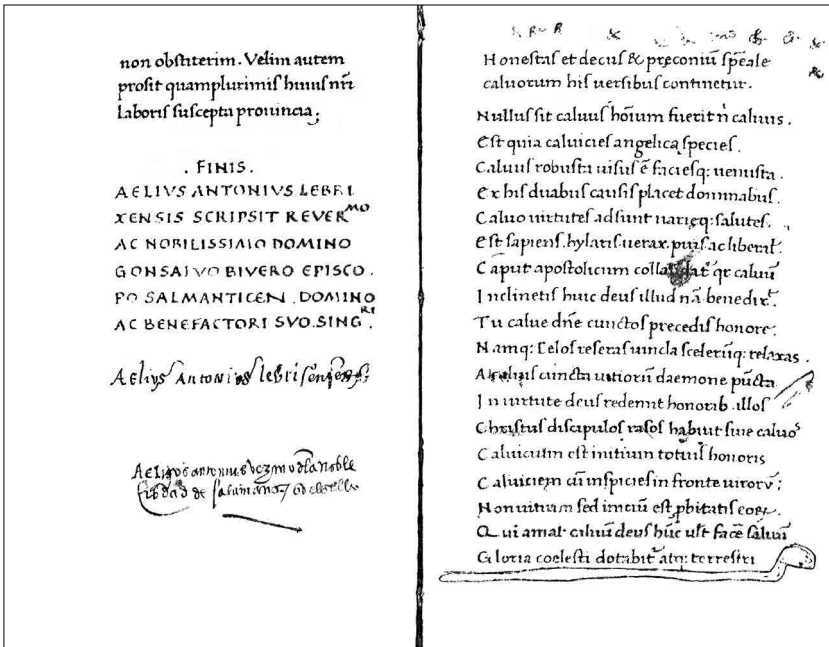 non obstiterim. Velim autem
prosit quamplurimis huius nr̄i
laboris suscepta prouincia;
. FINIS .
AELIVS ANTONIVS LEBRI
XENSIS SCRIPSIT REVER MO
AC NOBILISSIMO DOMINO
GONSALVO BIVERO EPISCO.
PO SALMANTICEN . DOMINO
AC BENEFACTORI SVO. SING RI.
Aelius Antonius
Aelius antonius noble
de
Honestas et decus & preconiū sp̄eale
caluorum his uersibus continetur.
Nullus sit caluus hoīum fuerit n̄ caluus.
Est quia caluicies angelicę species.
Caluus robusta uisus ē faciesq: uenusta.
Ex his duabus causis placet domnabus.
Caluo uirtutes adsunt uarieq: salutes.
Est sapiens. hylaris uerax. puis ac liberal̄.
Caput apostolicum qr caluū
Inclinetis huic deus illud nā benedix̄t.
Tu calue dn̄e cunctos precedis honore.
Namq: celos reseras uincla scelerūq: relaxas.
cuncta uitiorū daemone pūcta
In uirtute deus redemit honorib. illos
Christus discipulos rasos habuit siue caluos
Caluicium est initium totius honoris
Caluiciem cū inspicies in fronte uirorū;
Non uitium sed iniciū est p̱bitatis eoꝝ.
Qui amat caluū deus hūc ult facē saluū
Gloria coelesti dotabit̄ atq: terrestri